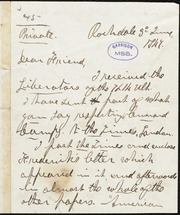 Private.
Rochdale 3d June,
1868.
GARRISON
MSS.
Dear Friend,
I received the
Liberators with the
I have sent part of what
you say respecting Edward
to the Times, London.
I post the Times and enclose
letter which
appeared in it and afterwards
in almost the whole of the
other papers. American